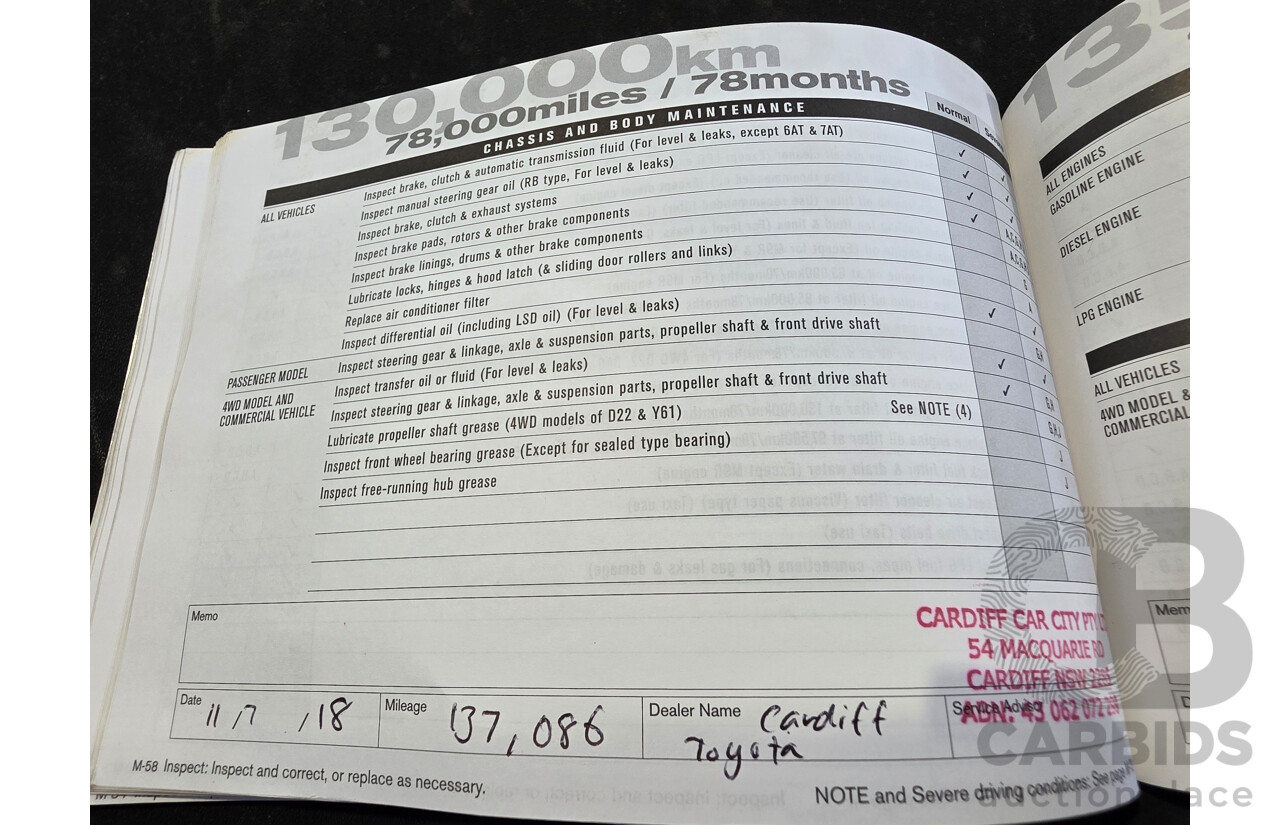 130,000km
78,000miles / 78months
CHASSIS AND BODY MAINTENANCE
Normal
ALL VEHICLES
Inspect brake, clutch & automatic transmission fluid (For level & leaks, except 6AT & 7AT) ✓
Inspect manual steering gear oil (RB type, For level & leaks) ✓
Inspect brake, clutch & exhaust systems ✓
Inspect brake pads, rotors & other brake components ✓
Inspect brake linings, drums & other brake components
Lubricate locks, hinges & hood latch (& sliding door rollers and links)
Replace air conditioner filter
Inspect differential oil (including LSD oil) (For level & leaks) ✓
PASSENGER MODEL
Inspect steering gear & linkage, axle & suspension parts, propeller shaft & front drive shaft
4WD MODEL AND
COMMERCIAL VEHICLE
Inspect transfer oil or fluid (For level & leaks) ✓
Inspect steering gear & linkage, axle & suspension parts, propeller shaft & front drive shaft ✓
Lubricate propeller shaft grease (4WD models of D22 & Y61) See NOTE (4)
Inspect front wheel bearing grease (Except for sealed type bearing)
Inspect free-running hub grease
Memo
CARDIFF CAR CITY
54 MACQUARIE RD
CARDIFF NSW
ABN: 43 062 072
Date 11/7/18
Mileage 137,086
Dealer Name Cardiff
Toyota
M-58 Inspect: Inspect and correct, or replace as necessary.
NOTE and Severe driving conditions: See page
135
ALL ENGINES
GASOLINE ENGINE
DIESEL ENGINE
LPG ENGINE
ALL VEHICLES
4WD MODEL &
COMMERCIAL
Mem
D
CARBIDS
auction place